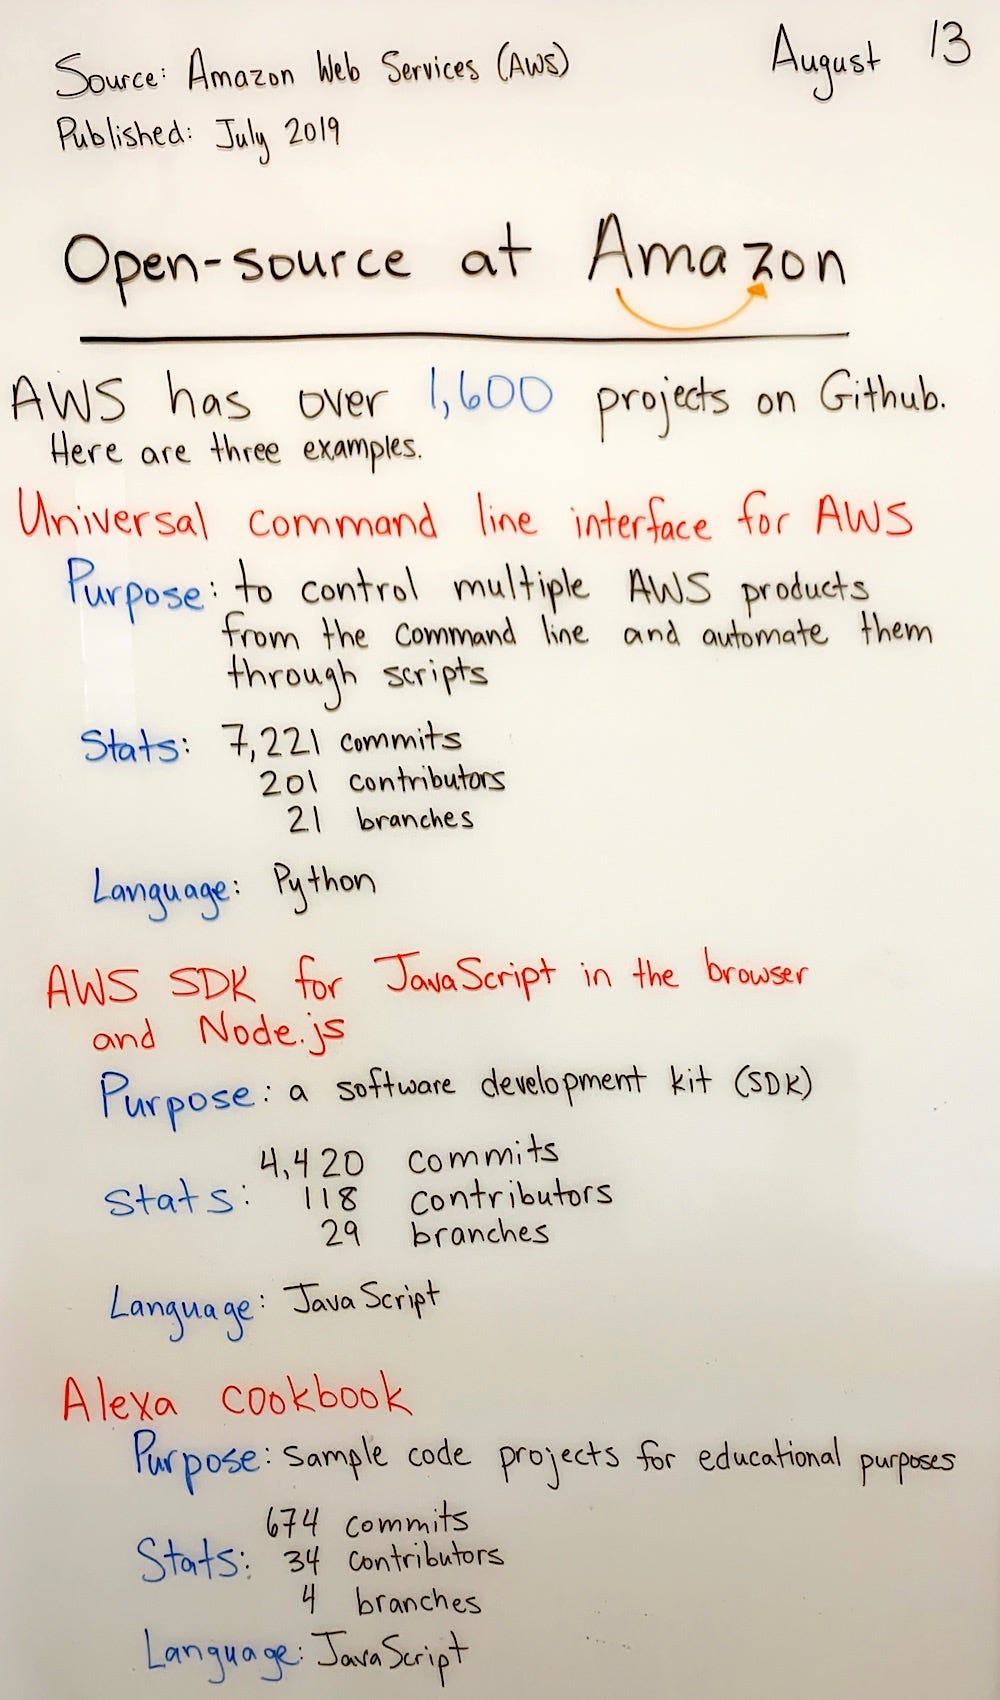 Source: Amazon Web Services (AWS)
August 13
Published: July 2019
Open-source at Amazon
AWS has over 1,600 projects on Github.
Here are three examples.
Universal command line interface for AWS
Purpose: to control multiple AWS products
from the command line and automate them
through scripts
Stats: 7,221 commits
201 contributors
21 branches
Language: Python
AWS SDK for JavaScript in the browser
and Node.js
Purpose: a software development kit (SDK)
4,420 commits
Stats: 118 contributors
29 branches
Language: JavaScript
Alexa cookbook
Purpose: sample code projects for educational purposes
674 commits
Stats: 34 contributors
4 branches
Language: JavaScript